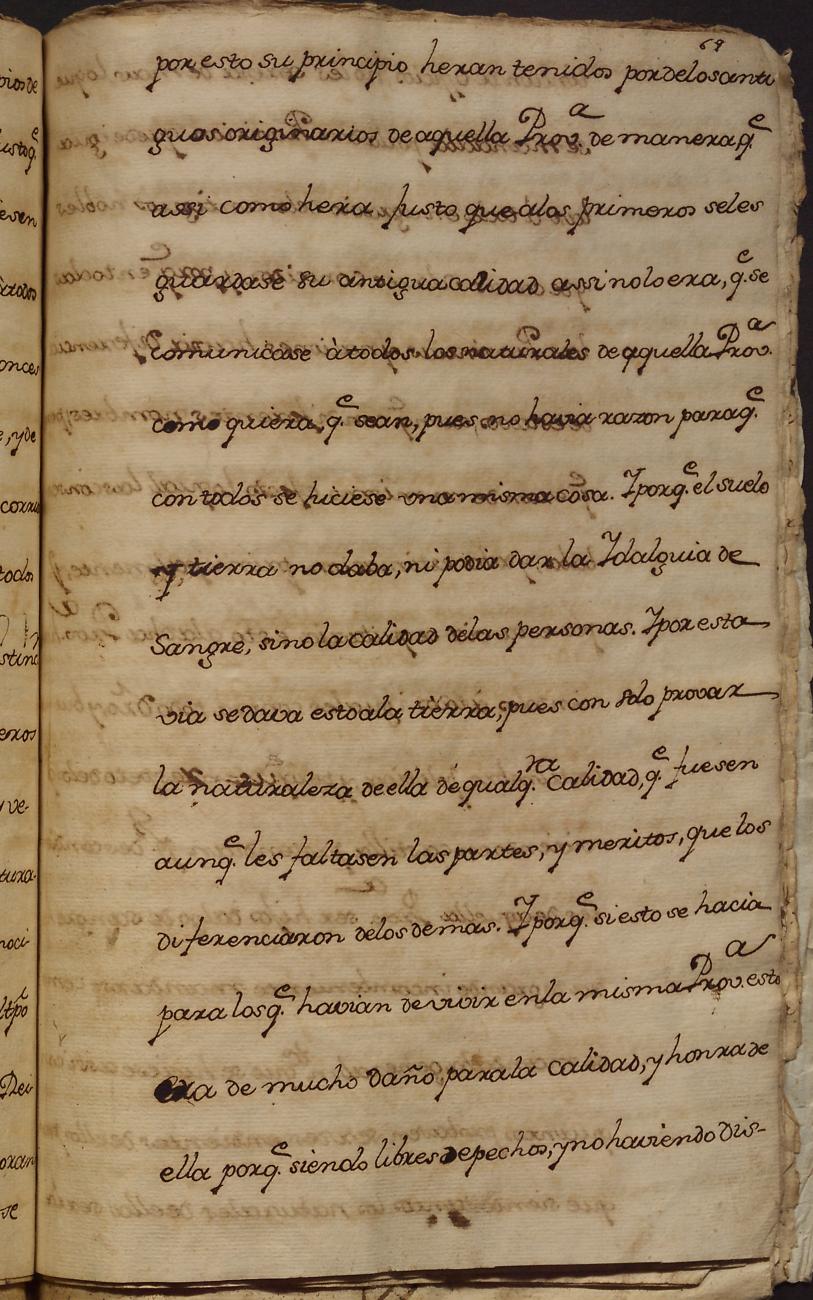 69
por esto su principio heran tenidos por delos anti
guos originarios de aquella Prov.ᵃ de manera q.ᵉ
assi como hera justo que alos primeros seles
guardase su antigua calidad assi nolo era, q.ᵉ se
comunicase à todos los naturales de aquella Prov.ᵃ
como quiera, q.ᵉ sean, pues no havia razon para q.ᵉ
con todos se hiciese una misma cosa. Y porq.ᵉ el suelo
y tierra no daba, ni podia dar la Ydalguia de
Sangre, sino la calidad delas personas. Y por esta
via se dava esto ala tierra, pues con solo provar
la naturaleza de ella de qualq.ʳᵃ calidad, q.ᵉ fuesen
aunq.ᵉ les faltasen las partes, y meritos, que los
diferenciaron delos demas. Y porq.ᵉ si esto se hacia
para los q.ᵉ havian de vivir en la misma Prov.ᵃ esto
era de mucho daño para la calidad, y honra de
ella porq.ᵉ siendo libres de pechos, y no haviendo dis-